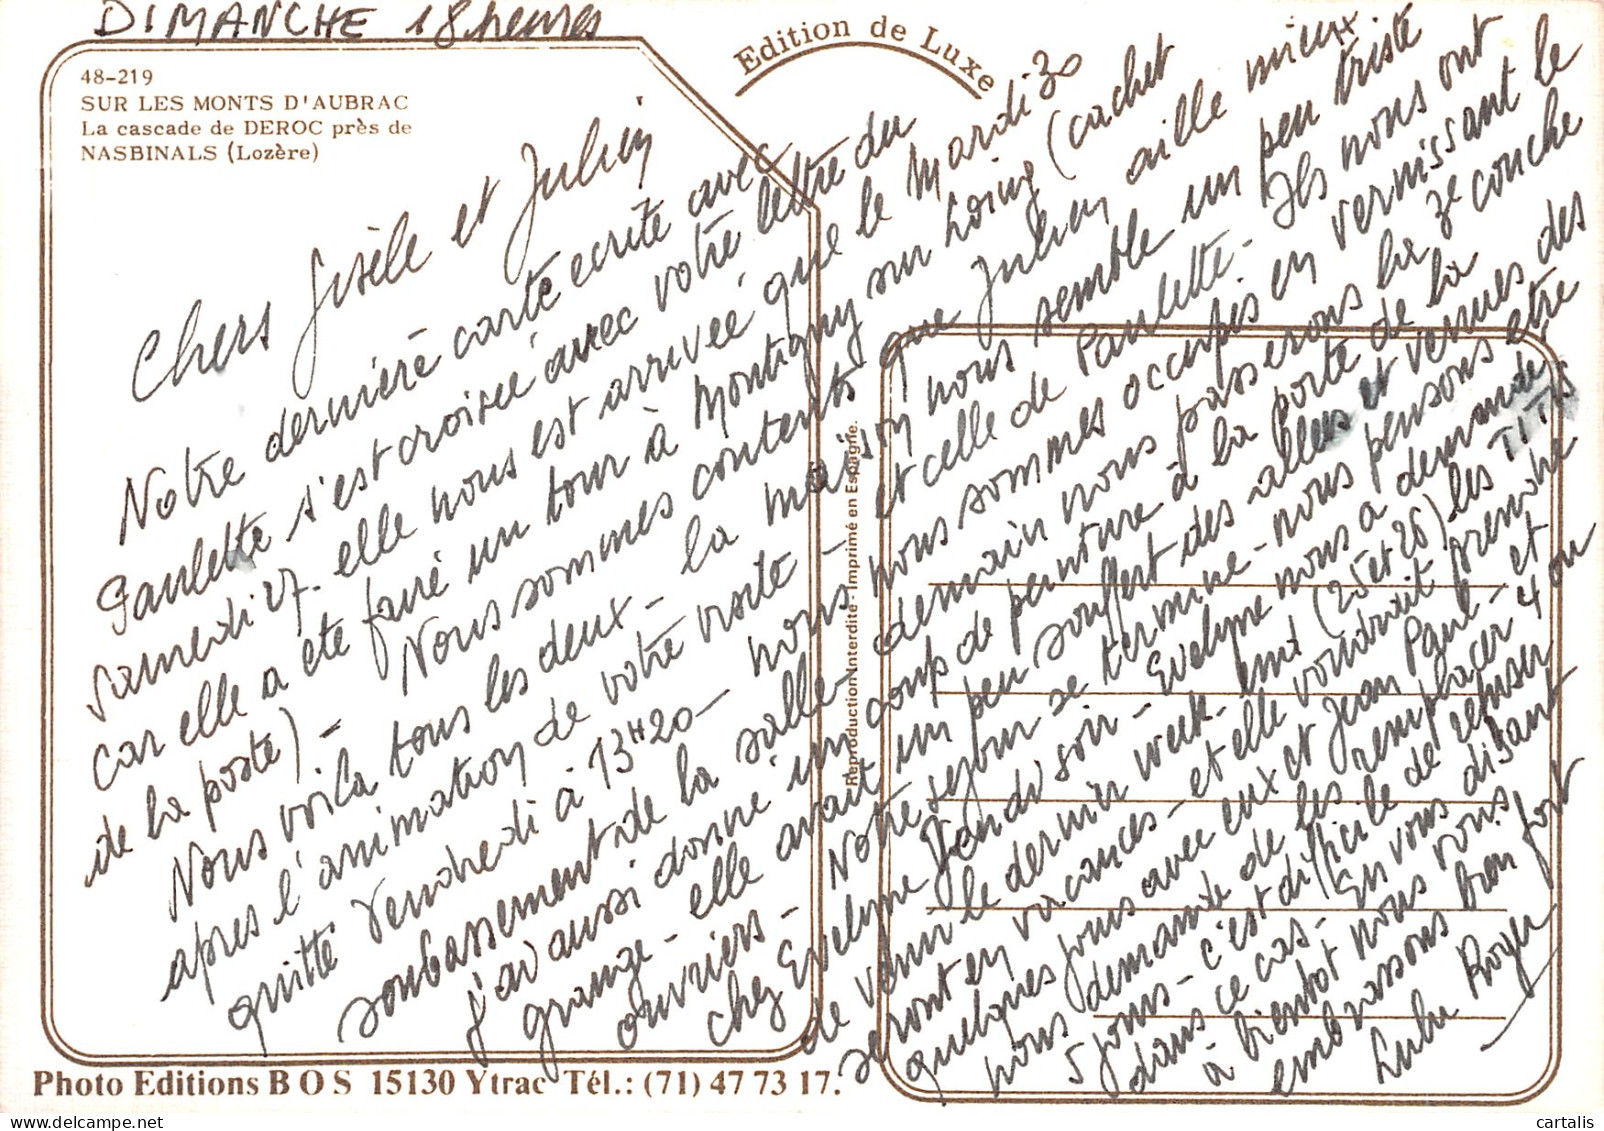 DIMANCHE 18 heures
48-219
SUR LES MONTS D'AUBRAC
La cascade de DEROC près de
NASBINALS (Lozère)
Edition de Luxe
Chers Gisèle et Julien
Notre dernière carte ecrite avec
Paulette s'est croisée avec votre lettre du
samedi 27. elle nous est arrivée que le Mardi 30
car elle a été faire un tour à Montigny sur Loing (cachet
de la poste) - Nous sommes contents que Julien aille mieux
Nous voilà tous les deux - la maison nous semble un peu triste
apres l'animation de votre visite - et celle de Paulette - Ils nous ont
quitté Vendredi à 13H20 - nous nous sommes occupés en vernissant le
soubassement de la salle - demain nous passerons la 2e couche
j'ai aussi donné un coup de peinture à la porte de la
grange - elle avait un peu souffert des allees et venues des
ouvriers - Notre sejour se termine - nous pensons etre
chez Evelyne Jeudi soir - Evelyne nous a demandé
de venir le dernier week-end (25 et 26) les
seront en vacances - et elle voudrait prendre
quelques jours avec eux et Jean Paul - et
nous demande de les remplacer 4 ou
5 jours - c'est difficile de refuser
dans ce cas - En vous disant
à bientot nous vous
embrassons bien fort
Lulu Roger
Reproduction Interdite - Imprimé en Espagne.
Photo Editions B O S 15130 Ytrac Tél.: (71) 47 73 17.
cartalis.com